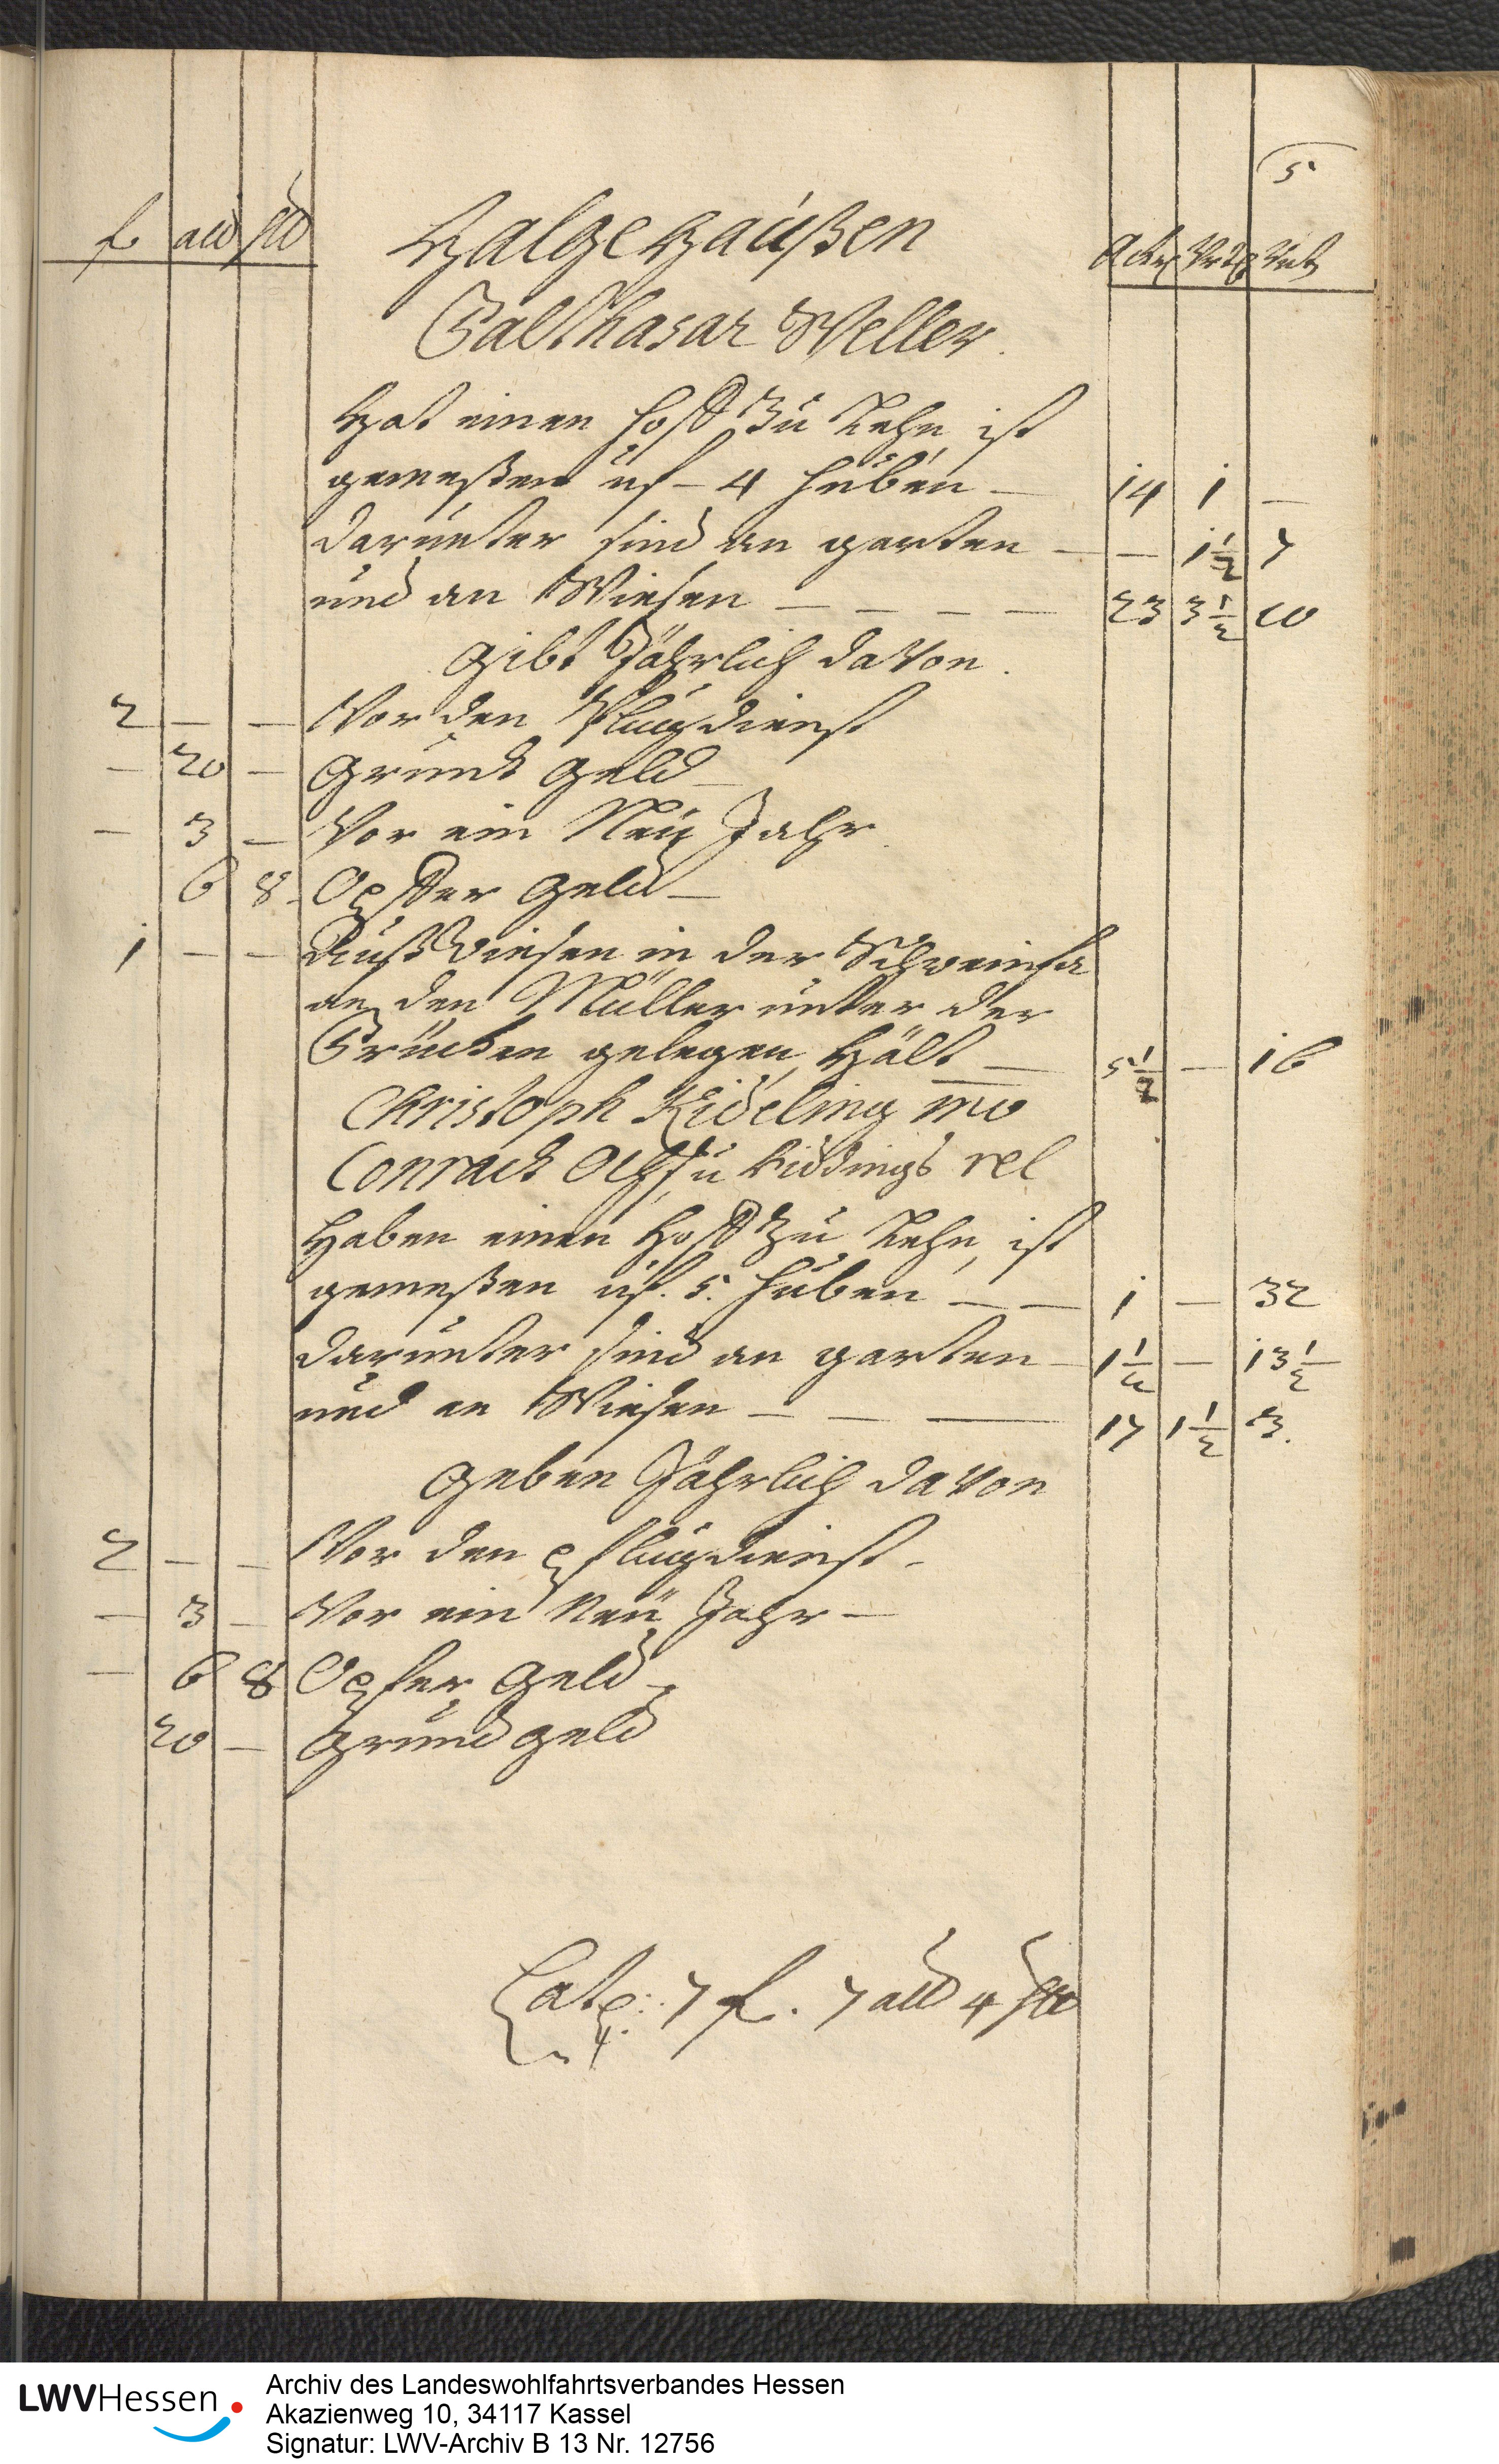 5
f alb hlr Halgehaußen Acker Vrtl Rut
Balthasar Weller.
Hat einen Hoff zu Lehn, ist
gemeßen uf - 4 Huben - 14 1 -
darunter sind an garten - - 1½ 7
und an Wiesen - - - - 23 3½ 10
gibt Jährlich davon.
2 - - Vor den Pflugdienst
- 20 - Grund Geld -
- 3 - Vor ein Neu Jahr
6 8 Opffer Geld -
1 - - Auß Wiesen in der
an den Müller unter der
Brücken gelegen, Hält - 5½ - 16
Christoph Kideling
Conrad rel
Haben einen Hoff zu Lehn, ist
gemeßen uf. 5. Huben - - 1 - 32
darunter sind an garten - 1¼ - 13½
und an Wiesen - - - 17 1½ 3.
geben Jährlich davon
2 - - Vor den pflugdienst -
- 3 - Vor ein Neu Jahr -
- 6 8 Opfer Geld -
20 - Grund geld
Latp: 7 f. 7 alb 4 hlr
LWVHessen
Archiv des Landeswohlfahrtsverbandes Hessen
Akazienweg 10, 34117 Kassel
Signatur: LWV-Archiv B 13 Nr. 12756